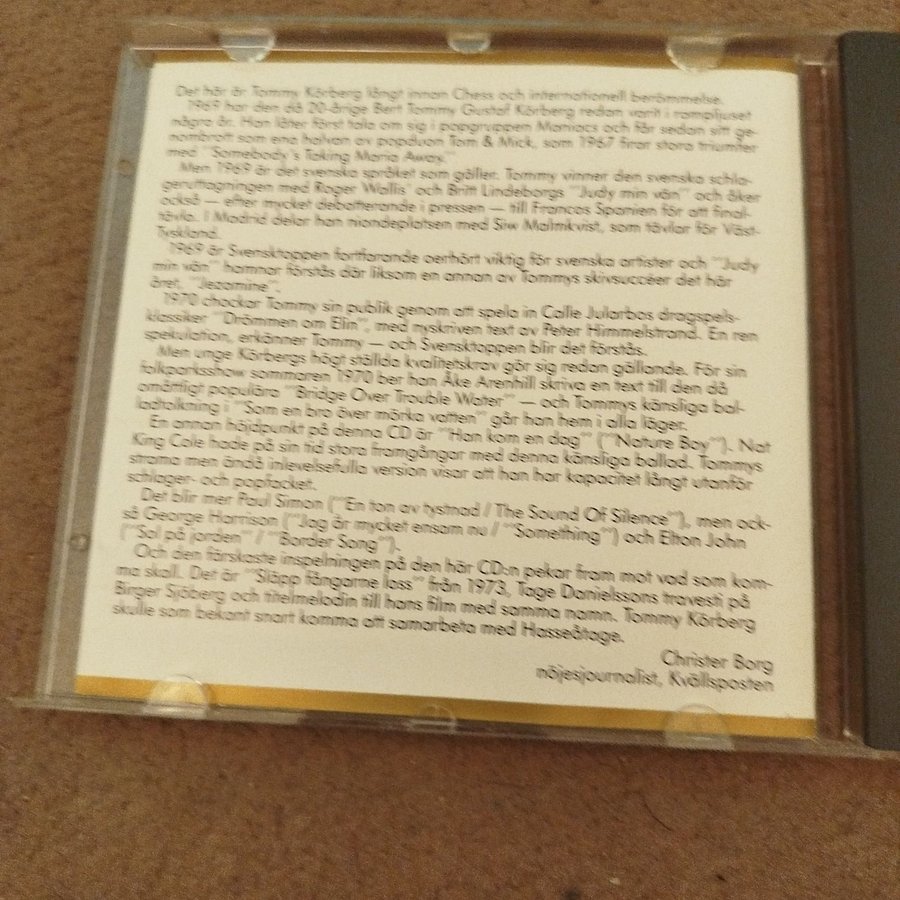 Det här är Tommy Körberg långt innan Chess och internationell berömmelse.
1969 har den då 20-årige Bert Tommy Gustaf Körberg redan varit i rampljuset
några år. Han låter först tala om sig i popgruppen Maniacs och får sedan sitt ge-
nombrott som ena halvan av popduon Tom & Mick, som 1967 firar stora triumfer
med "Somebody's Taking Maria Away."
Men 1969 är det svenska språket som gäller. Tommy vinner den svenska schla-
geruttagningen med Roger Wallis' och Britt Lindeborgs "Judy min vän" och åker
också — efter mycket debatterande i pressen — till Francos Spanien för att final-
tävla. I Madrid delar han niondeplatsen med Siw Malmkvist, som tävlar för Väst-
Tyskland.
1969 är Svensktoppen fortfarande oerhört viktig för svenska artister och "Judy
min vän" hamnar förstås där liksom en annan av Tommys skivsuccéer det här
året, "Jezamine".
1970 chockar Tommy sin publik genom att spela in Calle Jularbos dragspels-
klassiker "Drömmen om Elin", med nyskriven text av Peter Himmelstrand. En ren
spekulation, erkänner Tommy — och Svensktoppen blir det förstås.
Men unge Körbergs högt ställda kvalitetskrav gör sig redan gällande. För sin
folkparksshow sommaren 1970 ber han Åke Arenhill skriva en text till den då
omåttligt populära "Bridge Over Trouble Water" — och Tommys känsliga bal-
ladtolkning i "Som en bro över mörka vatten" går han hem i alla läger.
En annan höjdpunkt på denna CD är "Han kom en dag" ("Nature Boy"). Nat
King Cole hade på sin tid stora framgångar med denna känsliga ballad. Tommys
strama men ändå inlevelsefulla version visar att han har kapacitet långt utanför
schlager- och popfacket.
Det blir mer Paul Simon ("En ton av tystnad / The Sound Of Silence"), men ock-
så George Harrison ("Jag är mycket ensam nu / "Something") och Elton John
("Sol på jorden" / "Border Song").
Och den färskaste inspelningen på den här CD:n pekar fram mot vad som kom-
ma skall. Det är "Släpp fångarne loss" från 1973, Tage Danielssons travesti på
Birger Sjöberg och titelmelodin till hans film med samma namn. Tommy Körberg
skulle som bekant snart komma att samarbeta med Hasseåtage.
Christer Borg
nöjesjournalist, Kvällsposten